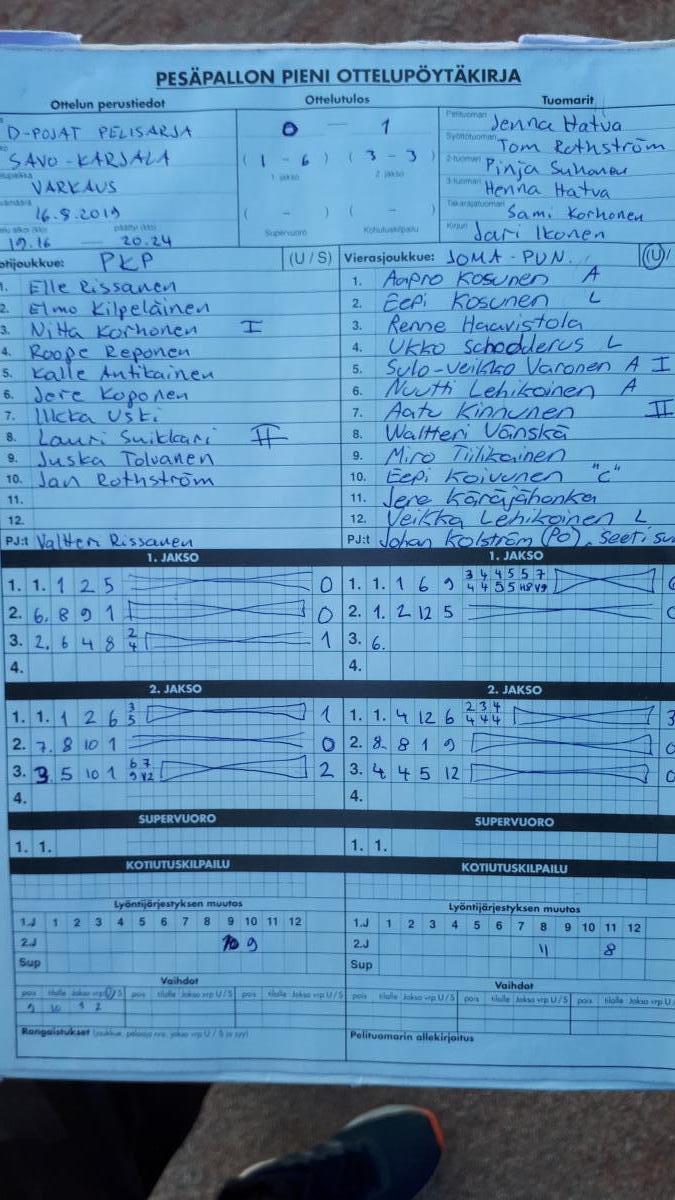 PESÄPALLON PIENI OTTELUPÖYTÄKIRJA
Ottelun perustiedot Ottelutulos Tuomarit
D-POJAT PELISARJA 0 — 1 Jenna Hatva
SAVO-KARJALA (1 - 6) (3 - 3) Syöttötuomari Tom Rothström
1. jakso 2. jakso 2-tuomari Pinja Suhonen
VARKAUS 3-tuomari Henna Hatva
16.8.2019 ( - ) ( - ) Takarajatuomari Sami Korhonen
19.16 — 20.24 Supervuoro Kotiutuskilpailu Kirjuri Jari Ikonen
otijoukkue: PKP (U / S) Vierasjoukkue: JOMA-PUN. (U/
1. Elle Rissanen 1. Aapro Kosunen A
2. Elmo Kilpeläinen 2. Eepi Kosunen L
3. Niila Korhonen I 3. Renne Haavistola
4. Roope Reponen 4. Ukko Schodderus L
5. Kalle Antikainen 5. Sulo-Veikko Varonen A I
6. Jere Koponen 6. Nuutti Lehikoinen A
7. Iikka Uski 7. Aatu Kinnunen II
8. Lauri Suikkari II 8. Waltteri Vänskä
9. Juska Tolvanen 9. Miro Tiilikainen
10. Jan Rothström 10. Eepi Koivunen "C"
11. 11. Jere Käräjähonka
12. 12. Veikka Lehikoinen L
PJ:t Valtteri Rissanen PJ:t Johan Kolström (PO),
1. JAKSO 1. JAKSO
1. 1. 1 2 5 0 1. 1. 1 6 9 3 4 4 5 5 7
4 4 5 5 H8 V9
2. 6. 8 9 1 0 2. 1. 2 12 5
3. 2. 6 4 8 2 4 1 3. 6.
4. 4.
2. JAKSO 2. JAKSO
1. 1. 1 2 6 3 5 1 1. 1. 4 12 6 2 3 4 3
4 4 4
2. 7. 8 10 1 0 2. 8. 8 1 9
3. 3 5 10 1 6 7 2 3. 4 4 5 12
9 V2
4. 4.
SUPERVUORO SUPERVUORO
1. 1. 1. 1.
KOTIUTUSKILPAILU KOTIUTUSKILPAILU
Lyöntijärjestyksen muutos Lyöntijärjestyksen muutos
1.J 1 2 3 4 5 6 7 8 9 10 11 12 1.J 1 2 3 4 5 6 7 8 9 10 11 12
2.J 10 9 2.J 11 8
Sup Sup
Vaihdot Vaihdot
pois tilalle Jakso vrp U / S pois tilalle Jakso vrp U / S pois tilalle Jakso vrp U / S pois tilalle Jakso vrp U / S pois tilalle Jakso vrp U / S pois tilalle Jakso vrp U
9 10 1 2
Rangaistukset (joukkue, pelaaja nro, jakso vrp U / S ja syy) Pelituomarin allekirjoitus